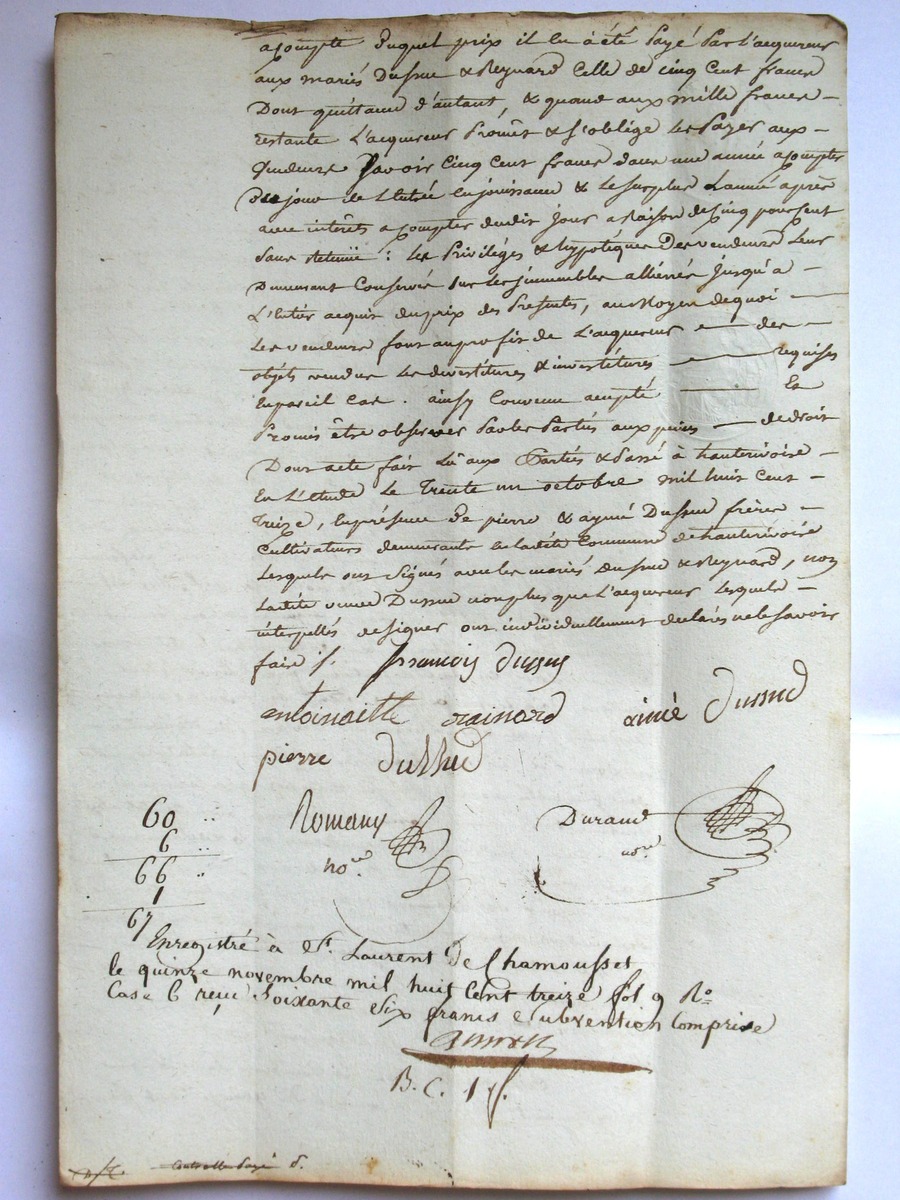 acompte duquel prix il lu a été payé par l'aquereur
aux mariés Dussud & Reynard celle de cinq cent francs
Dont quittance d'autant, & quand aux mille francs
restants L'acquereur Promet & s'oblige les Payer aux
vendeurs Savoir Cinq Cent francs dans une année acompter
du jour de L'entrée en jouissance & le surplus L'année après
avec intérêts acompter dudit jour a Raison de cinq pour Cent
sans retenüe : les Priviléges & hypotéques des vendeurs leur
Demeurant Conservés sur les immeubles alliénés jusqu'à
L'entier acquit du prix des Presentes, au Moyen de quoi
Les vendeurs font au profit de L'acquereur des
objets vendus les devestitures & investitures requises
En pareil Cas. ainsy Convenu accepté Et
Promis être observer Par les Parties aux peines de droit
Dont acte fait Lû aux Parties & Passé à hauterivoire
En L'étude le Trente un octobre mil huit Cent
Treize, En présence de pierre & aymé Dussud frères
Cultivateurs demeurants en ladite Commune de hauterivoire
Lesquels ont Signés avec les mariés Dussud & Reynard, non
Ladite veuve Dussud non plus que L'acquereur Lesquels
interpellés de signer ont individuellement declarés ne le savoir
faire ./.
françois dussus
antoinaitte rainard aimé Dussud
pierre dussud
60
6
66
1
67
Romany
no.re
Durand
no.re
Enregistré à St. Laurent de Chamousset
le quinze novembre mil huit Cent treize fol 9 Ro
Case 6 reçu Soixante Six francs Subvention Comprise
B. C. 1 f.
Controlle Payé